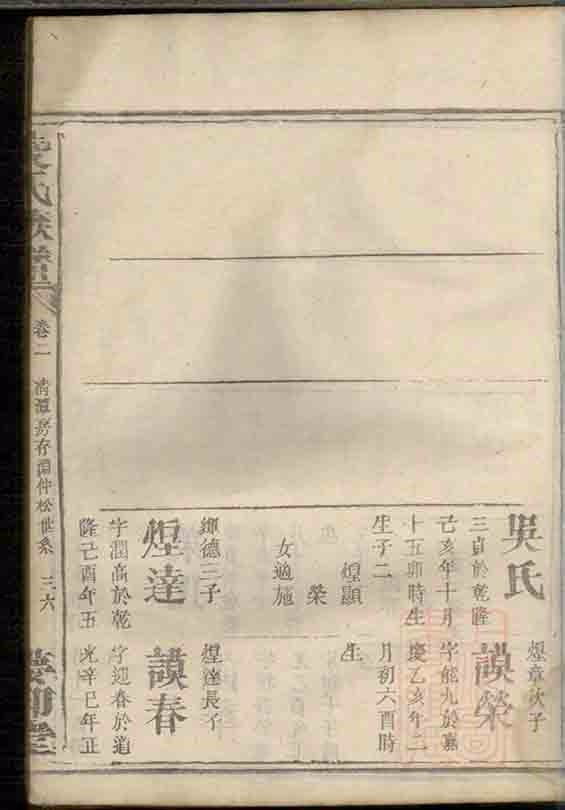 吳氏
三貞於乾隆
己亥年十月
十五卯時生
生子二
煌顯
榮
女適施
鄉德三子
煌達
字潤高於乾
隆己酉年五
煌章次子
謨榮
字能九於嘉
慶乙亥年二
月初六酉時
生
煌達長子
謨春
字迎春於道
光辛巳年正
氏族譜
卷二
清潭房存簡仲松世系
三六